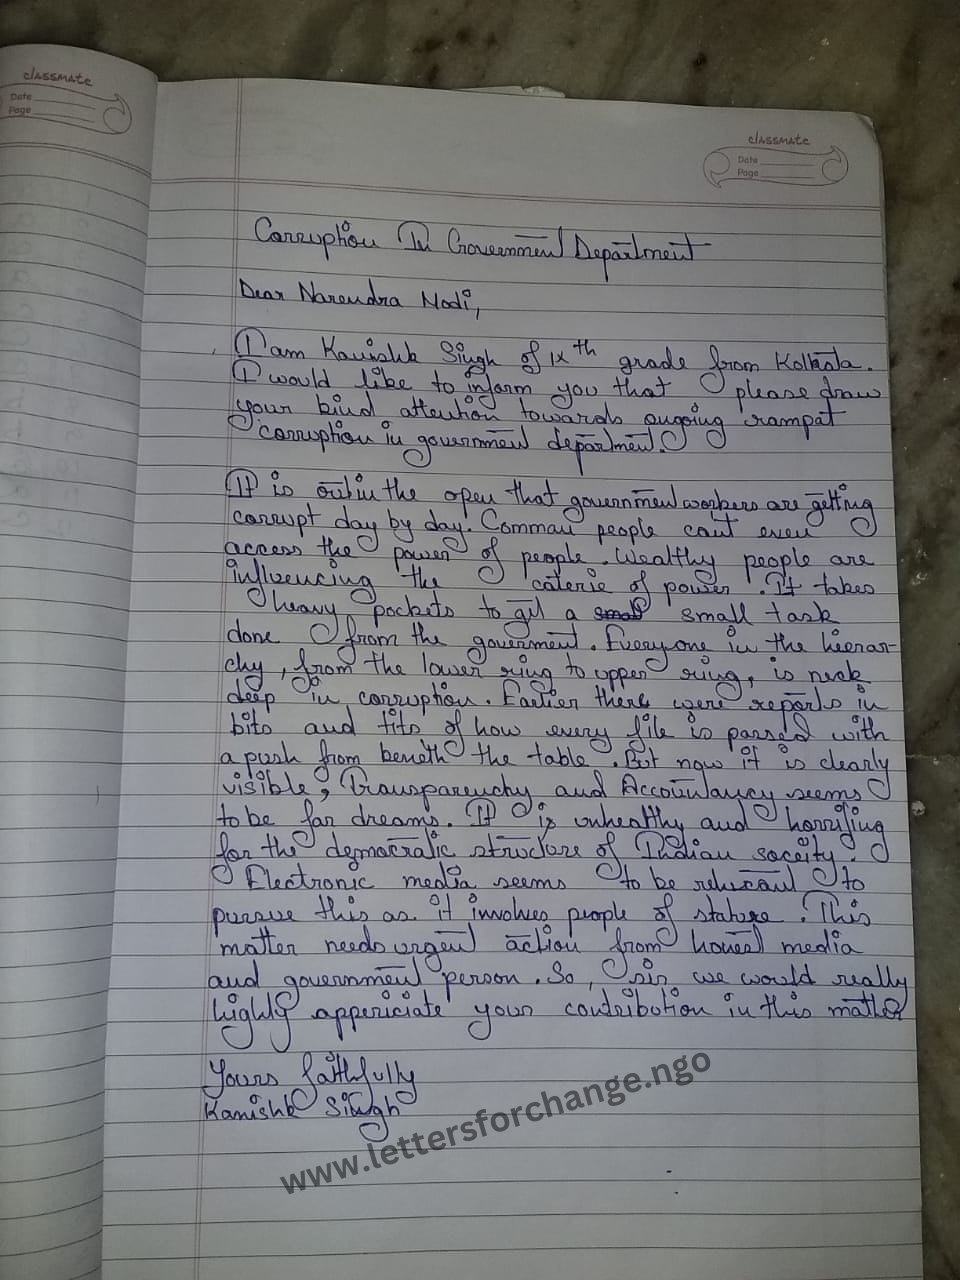 classmate
Date
Page
classmate
Date
Page
Corruption In Government Department
Dear Narendra Modi,
I am Kanishk Singh of IXth grade from Kolkata.
I would like to inform you that please draw
your kind attention towards ongoing rampat
corruption in government department.
It is out in the open that government workers are getting
corrupt day by day. Comman people cant even
access the power of people. Wealthy people are
influencing the caterie of power. It takes
heavy pockets to get a small small task
done from the goverment. Everyone in the hierar-
chy, from the lower ring to upper ring, is neck
deep in corruption. Earlier there were reports in
bits and tits of how every file is passed with
a push from beneth the table. But now it is clearly
visible, Transparenchy and Accountancy seems
to be far dreams. It is unhealthy and horrifing
for the democratic structure of Indian soceity.
Electronic media seems to be reluctant to
pursue this as it involves people of stature. This
matter needs urgent action from honest media
and government person. So, sir we would really
highly appericiate your contribution in this matter
Yours faithfully
Kanishk Singh
www.lettersforchange.ngo